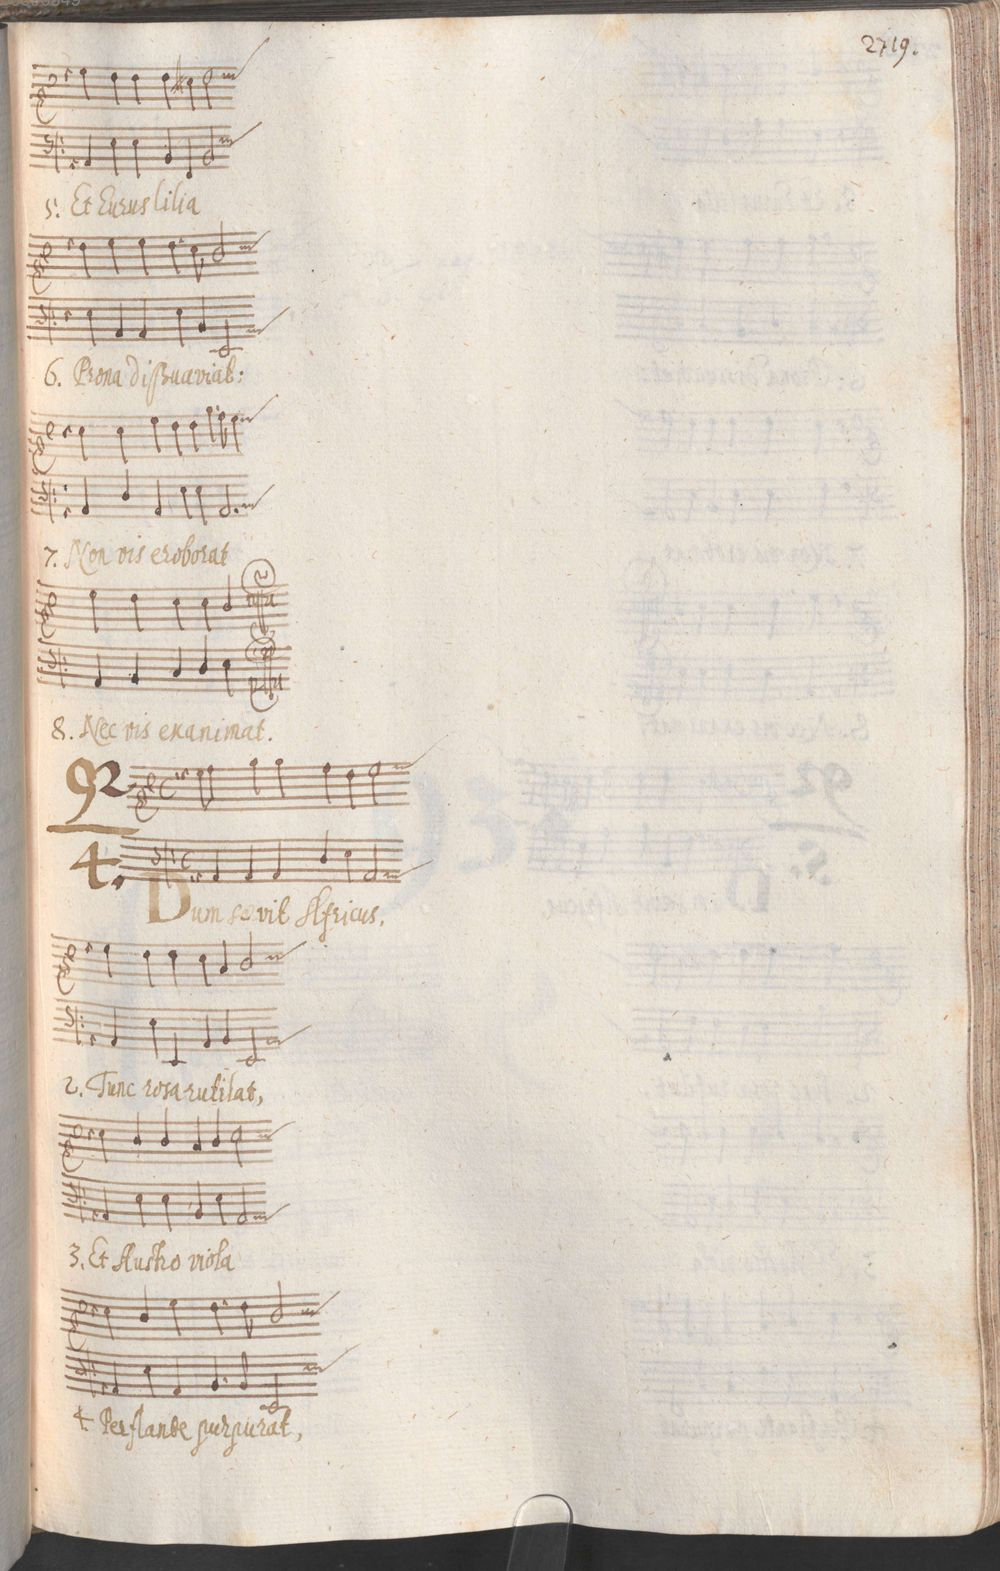 2719.
5. Et Eurus lilia
6. Prona dissuaviat:
7. Non vis eroborat
8. Nec vis exanimat.
92
4.
Dum sævit Africus,
2. Tunc rosa rutilat,
3. Et Austro viola
4 Perflante purpurat,